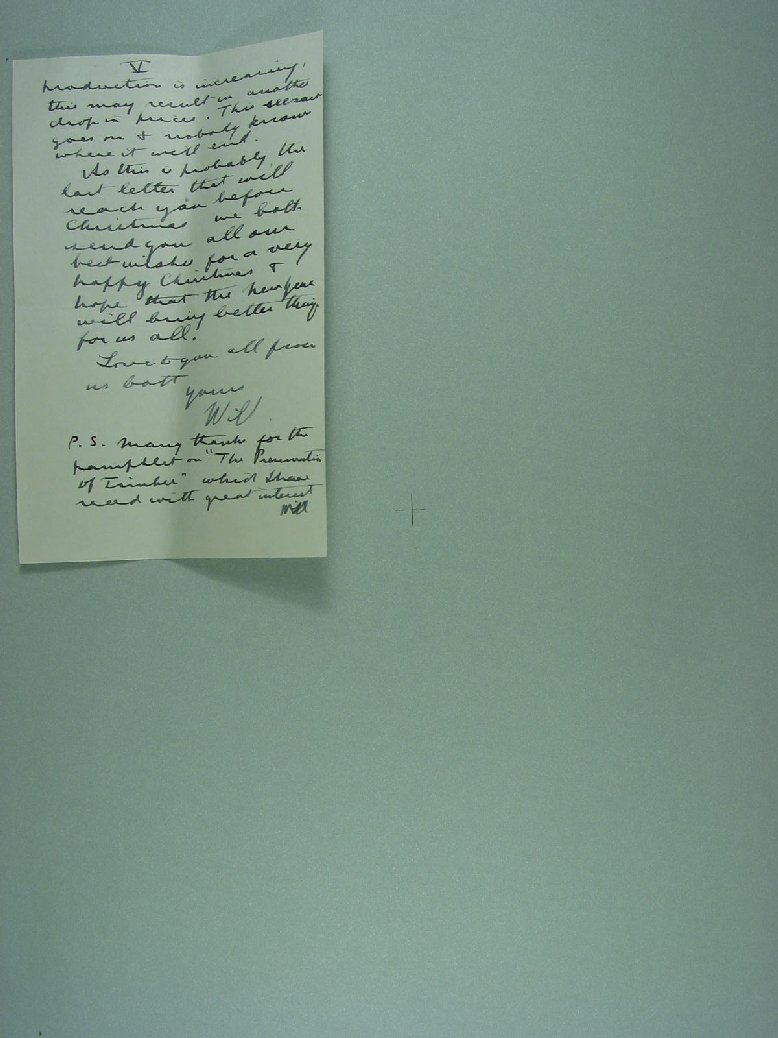 V
production is increasing,
this may result in another
drop in prices. This seesaw
goes on & nobody knows
where it will end.
As this is probably the
last letter that will
reach you before
Christmas we both
send you all our
best wishes for a very
happy Christmas &
hope that the New Year
will bring better things
for us all.
Love to you all from
us both
yours
Will.
P.S. Many thanks for the
pamphlet on "The Preservation
of Timber" which I have
read with great interest
Will